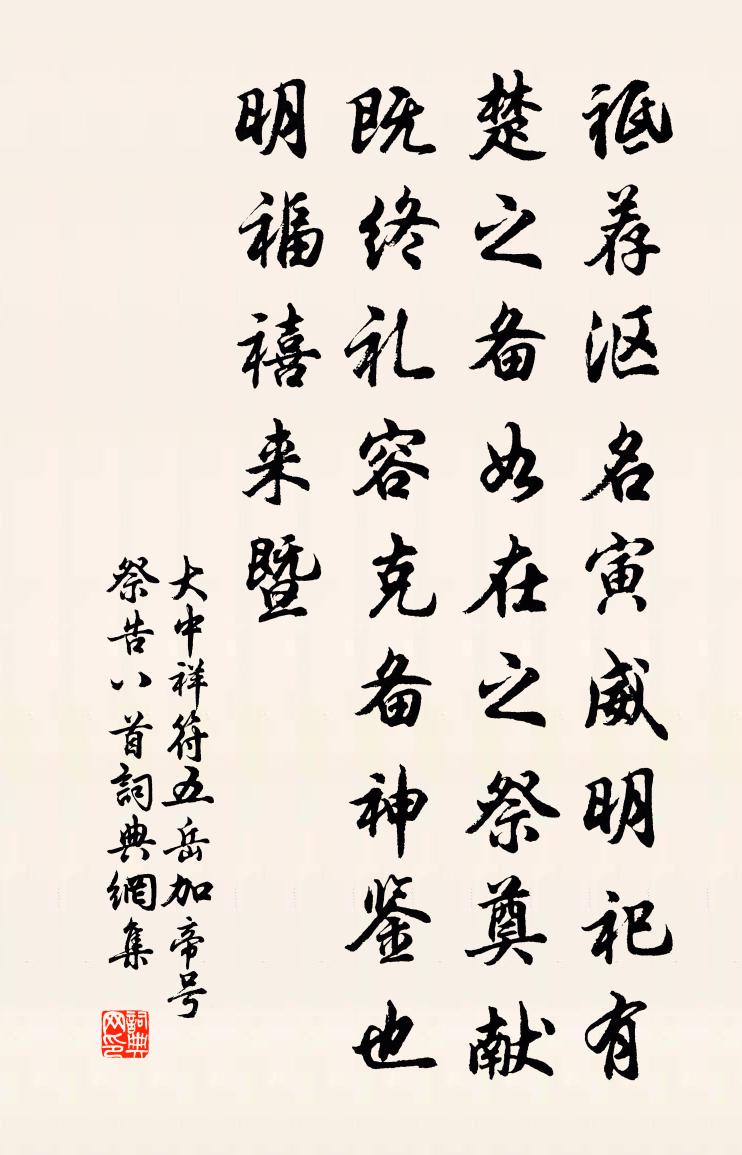 祗荐沤名寅威明祀有
楚之备如在之祭奠献
既终礼容克备神鉴也
明福禧来暨
大中祥符五岳加帝号
祭告八首詞典網集
詞典
网印